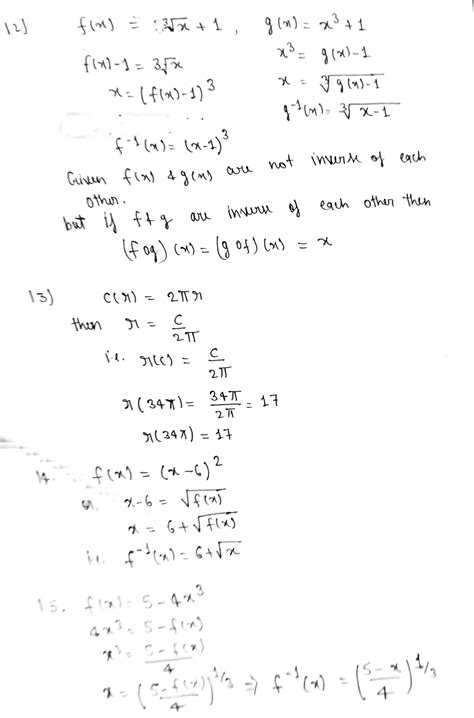 12) f(x) = ∛x + 1 , g(x) = x³ + 1
f(x) - 1 = ∛x    x³ = g(x) - 1
x = (f(x) - 1)³    x = ∛g(x) - 1
g⁻¹(x) = ∛x - 1
f⁻¹(x) = (x - 1)³
Given f(x) & g(x) are not inverse of each
other.
but if f & g are inverse of each other then
(fog)(x) = (gof)(x) = x
13) C(r) = 2πr
then r = C/2π
i.e. r(C) = C/2π
r(34π) = 34π/2π = 17
r(34π) = 17
14. f(x) = (x - 6)²
or x - 6 = √f(x)
x = 6 + √f(x)
i.e. f⁻¹(x) = 6 + √x
15. f(x) = 5 - 4x³
4x³ = 5 - f(x)
x³ = 5 - f(x)/4
x = (5 - f(x)/4)^1/3 ⇒ f⁻¹(x) = (5 - x/4)^1/3